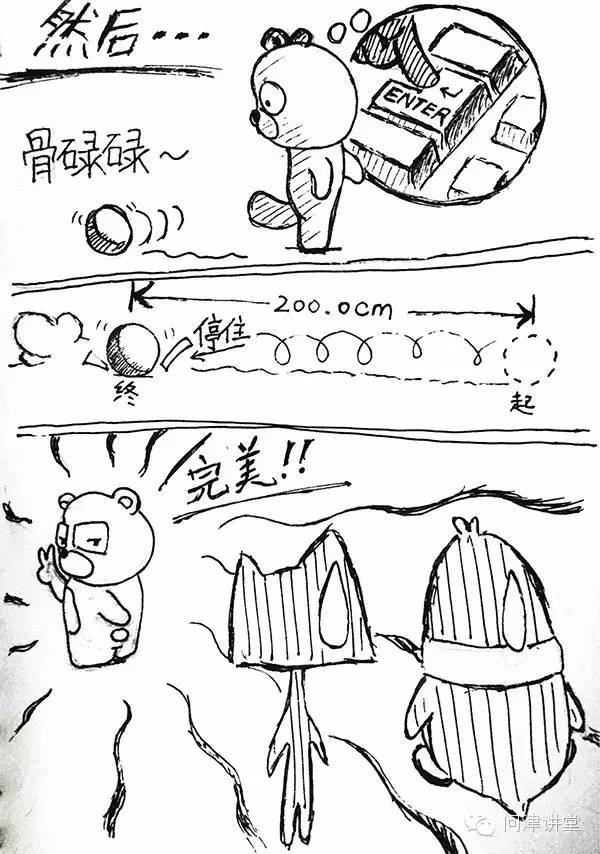 然后...
ENTER
骨碌碌~
200.0cm
停住
终
起
完美!!
问津讲堂